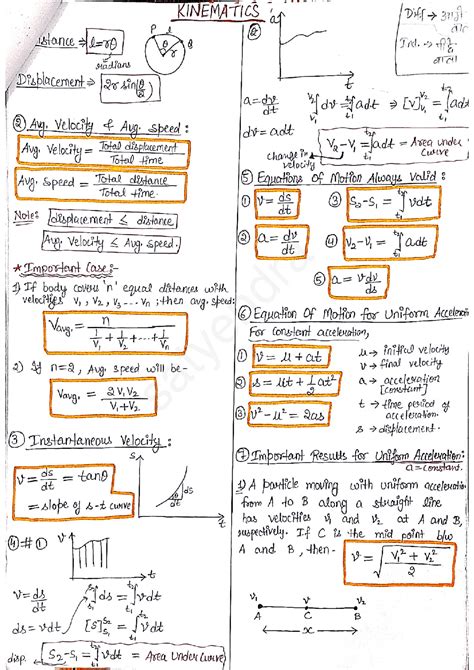 KINEMATICS
Distance → l=rθ
radians
Displacement → 2r sin(θ/2)
P
θ
r
② Avg. Velocity & Avg. speed :
Avg. Velocity = Total displacement / Total time
Avg. Speed = Total distance / Total time.
Note: displacement ≤ distance
Avg. Velocity ≤ Avg. speed.
* Important Case:-
1) If body covers 'n' equal distances with
velocities V₁, V₂, V₃... Vₙ ; then avg. speed:
Vavg. = n / (1/V₁ + 1/V₂ + ... 1/Vₙ)
2) If n=2, Avg. speed will be-
Vavg. = 2V₁V₂ / V₁+V₂.
③ Instantaneous Velocity :
v = ds/dt = tanθ
= slope of s-t curve
s
θ
dt
t
④ # ①
v
t
v = ds/dt
∫ds = ∫vdt
ds = vdt
[s] = ∫vdt
disp. S₂-S₁ = ∫vdt = Area Under Curve
②
a
t
Diff →
Int. →
a = dv/dt
∫dv = ∫adt ⇒ [v] = ∫adt
dv = adt
V₂-V₁ = ∫adt = Area under curve
change in velocity
⑤ Equations Of Motion Always Valid :
① v = ds/dt
③ S₂-S₁ = ∫vdt
② a = dv/dt
④ V₂-V₁ = ∫adt
⑤ a = vdv/ds
⑥ Equation Of Motion for Uniform Acceleration
For Constant acceleration,
① v = u + at
② s = ut + 1/2 at²
③ v²-u² = 2as
u → initial velocity
v → final velocity
a → acceleration [constant]
t → time period of acceleration.
s → displacement.
⑦ Important Results for Uniform Acceleration:
a = constant.
1) A particle moving with uniform acceleration
from A to B along a straight line
has velocities V₁ and V₂ at A and B,
respectively. If C is the mid point b/w
A and B, then-
v = √(V₁² + V₂² / 2)
V₁ v V₂
A C B
x